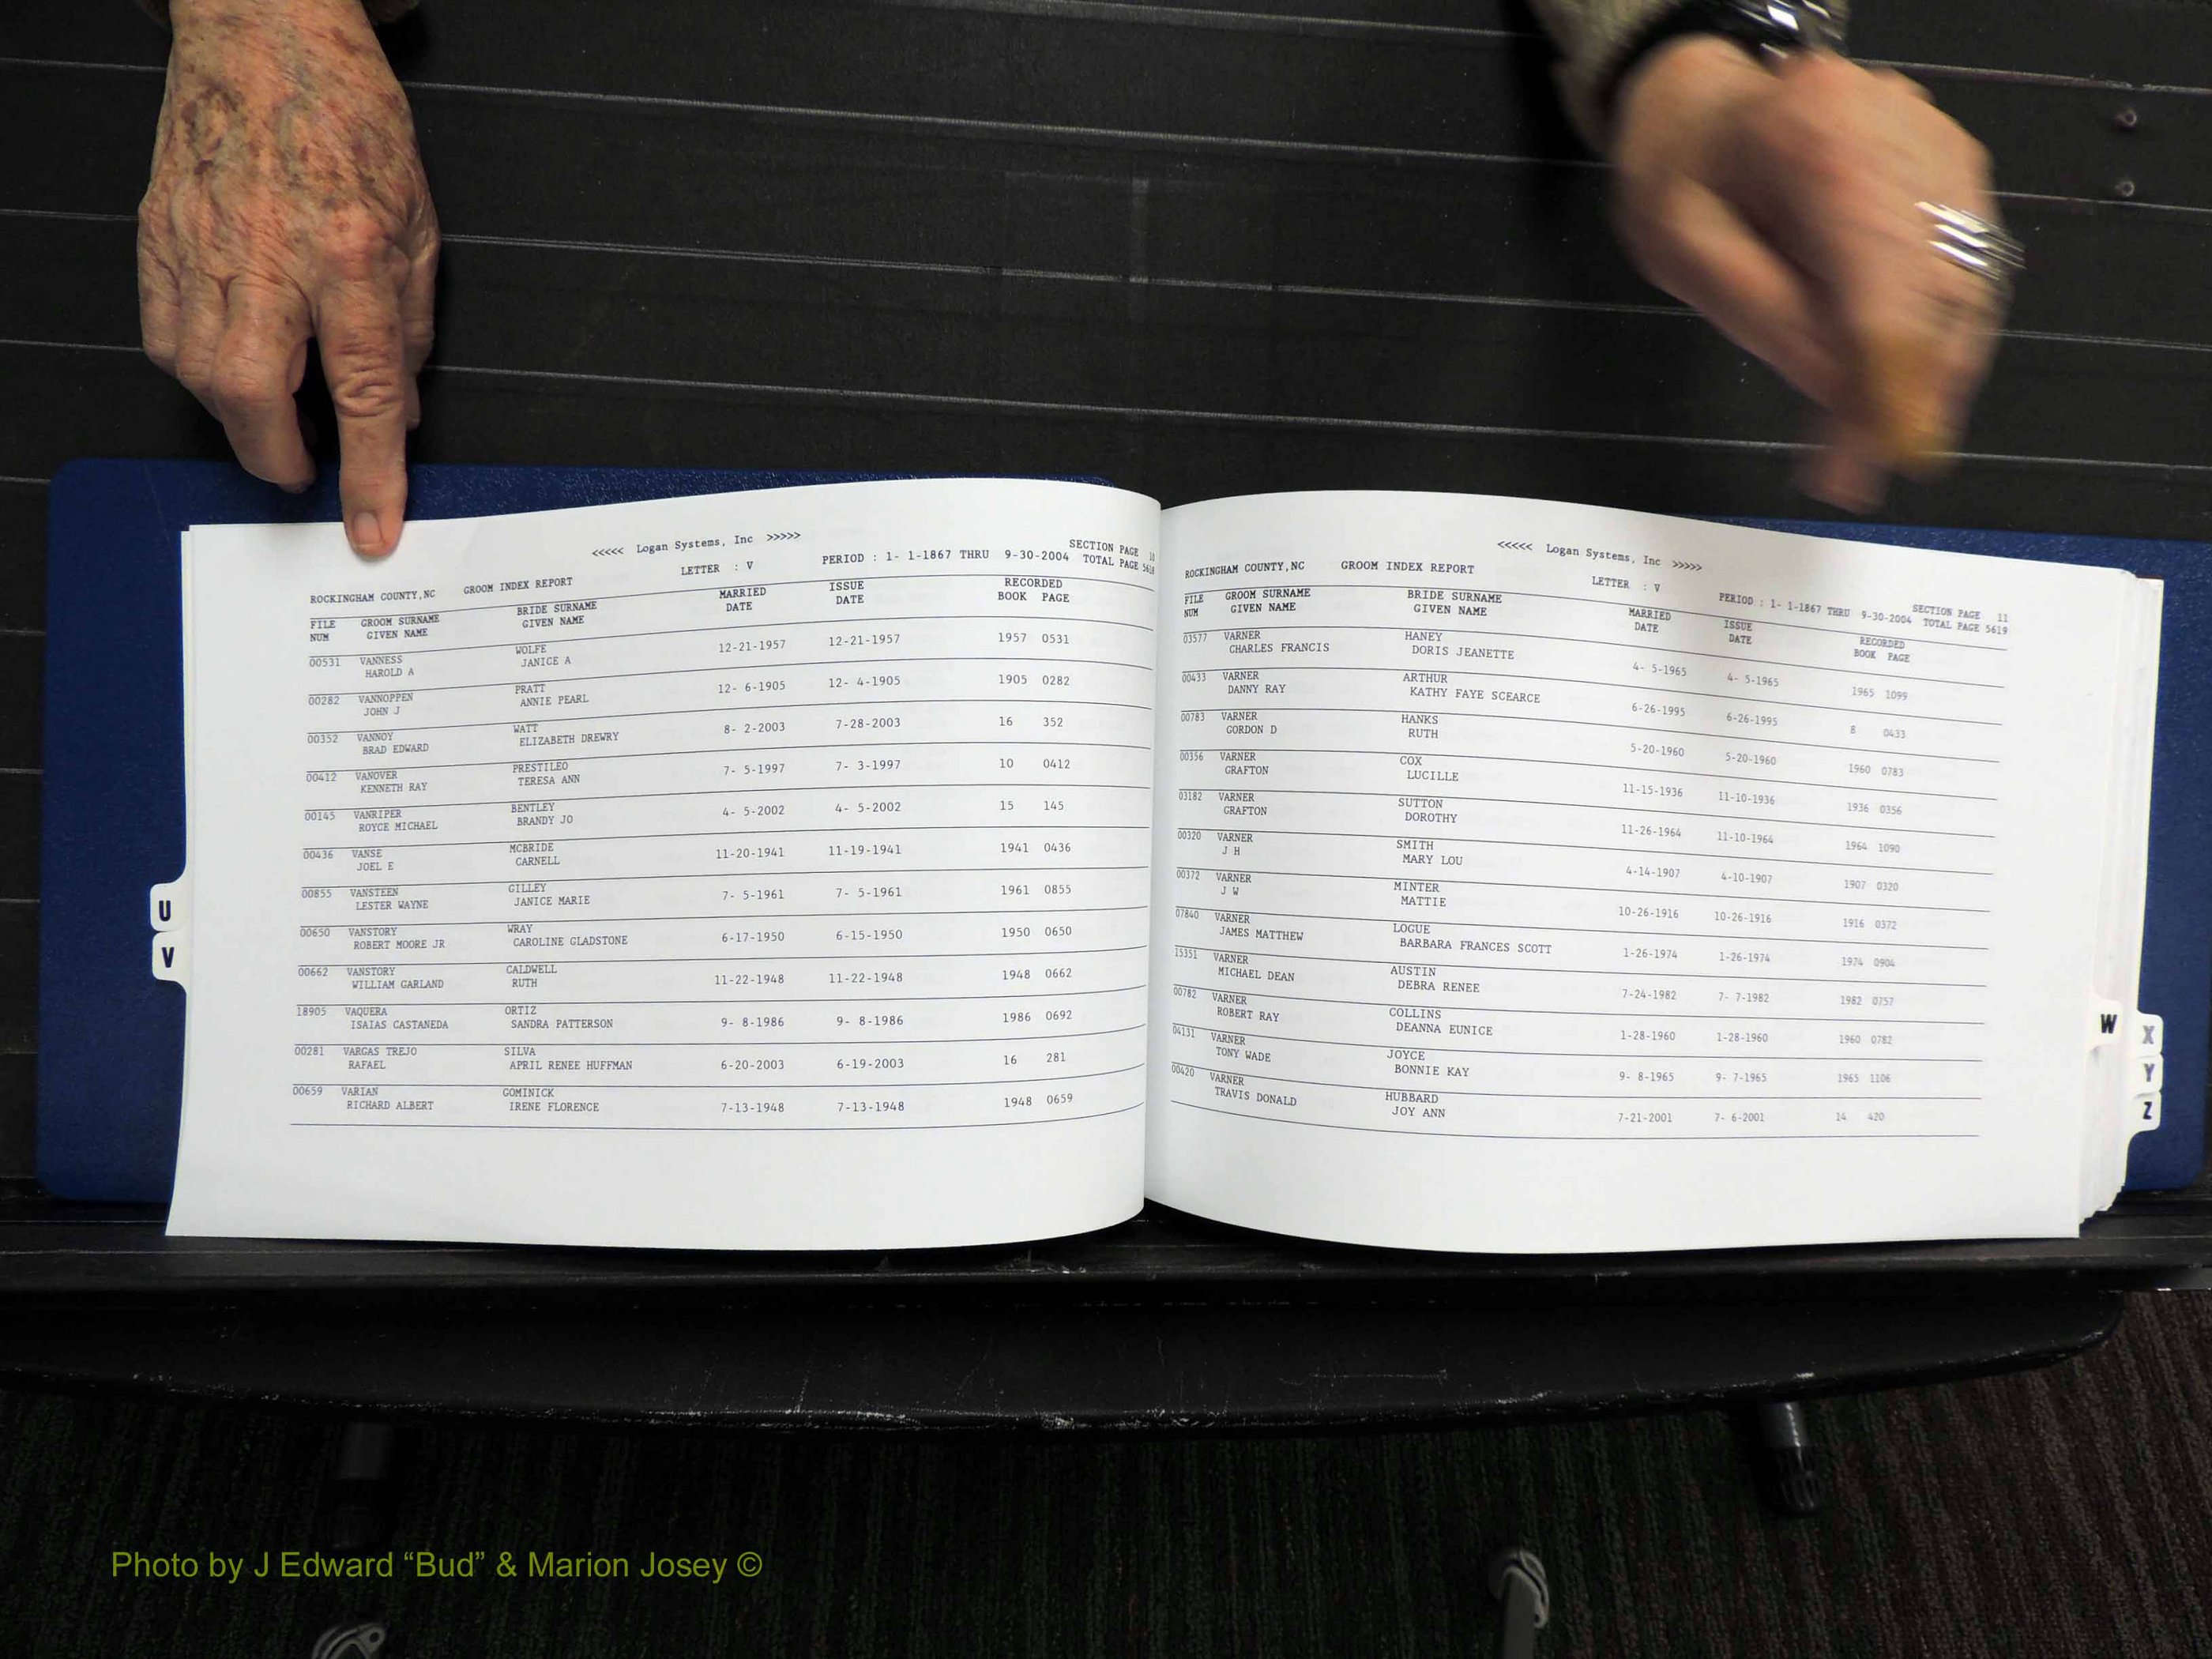 <<<<< Logan Systems, Inc >>>>>
SECTION PAGE 10
ROCKINGHAM COUNTY,NC GROOM INDEX REPORT LETTER : V PERIOD : 1- 1-1867 THRU 9-30-2004 TOTAL PAGE 5618
FILE GROOM SURNAME BRIDE SURNAME MARRIED ISSUE RECORDED
NUM GIVEN NAME GIVEN NAME DATE DATE BOOK PAGE
00531 VANNESS WOLFE 12-21-1957 12-21-1957 1957 0531
HAROLD A JANICE A
00282 VANNOPPEN PRATT 12- 6-1905 12- 4-1905 1905 0282
JOHN J ANNIE PEARL
00352 VANNOY WATT 8- 2-2003 7-28-2003 16 352
BRAD EDWARD ELIZABETH DREWRY
00412 VANOVER PRESTILEO 7- 5-1997 7- 3-1997 10 0412
KENNETH RAY TERESA ANN
00145 VANRIPER BENTLEY 4- 5-2002 4- 5-2002 15 145
ROYCE MICHAEL BRANDY JO
00436 VANSE MCBRIDE 11-20-1941 11-19-1941 1941 0436
JOEL E CARNELL
00855 VANSTEEN GILLEY 7- 5-1961 7- 5-1961 1961 0855
LESTER WAYNE JANICE MARIE
00650 VANSTORY WRAY 6-17-1950 6-15-1950 1950 0650
ROBERT MOORE JR CAROLINE GLADSTONE
00662 VANSTORY CALDWELL 11-22-1948 11-22-1948 1948 0662
WILLIAM GARLAND RUTH
18905 VAQUERA ORTIZ 9- 8-1986 9- 8-1986 1986 0692
ISAIAS CASTANEDA SANDRA PATTERSON
00281 VARGAS TREJO SILVA 6-20-2003 6-19-2003 16 281
RAFAEL APRIL RENEE HUFFMAN
00659 VARIAN GOMINICK 7-13-1948 7-13-1948 1948 0659
RICHARD ALBERT IRENE FLORENCE
U
V
<<<<< Logan Systems, Inc >>>>>
SECTION PAGE 11
ROCKINGHAM COUNTY,NC GROOM INDEX REPORT LETTER : V PERIOD : 1- 1-1867 THRU 9-30-2004 TOTAL PAGE 5619
FILE GROOM SURNAME BRIDE SURNAME MARRIED ISSUE RECORDED
NUM GIVEN NAME GIVEN NAME DATE DATE BOOK PAGE
03577 VARNER HANEY 4- 5-1965 4- 5-1965 1965 1099
CHARLES FRANCIS DORIS JEANETTE
00433 VARNER ARTHUR 6-26-1995 6-26-1995 8 0433
DANNY RAY KATHY FAYE SCEARCE
00783 VARNER HANKS 5-20-1960 5-20-1960 1960 0783
GORDON D RUTH
00356 VARNER COX 11-15-1936 11-10-1936 1936 0356
GRAFTON LUCILLE
03182 VARNER SUTTON 11-26-1964 11-10-1964 1964 1090
GRAFTON DOROTHY
00320 VARNER SMITH 4-14-1907 4-10-1907 1907 0320
J H MARY LOU
00372 VARNER MINTER 10-26-1916 10-26-1916 1916 0372
J W MATTIE
07840 VARNER LOGUE 1-26-1974 1-26-1974 1974 0904
JAMES MATTHEW BARBARA FRANCES SCOTT
15351 VARNER AUSTIN 7-24-1982 7- 7-1982 1982 0757
MICHAEL DEAN DEBRA RENEE
00782 VARNER COLLINS 1-28-1960 1-28-1960 1960 0782
ROBERT RAY DEANNA EUNICE
04131 VARNER JOYCE 9- 8-1965 9- 7-1965 1965 1106
TONY WADE BONNIE KAY
00420 VARNER HUBBARD 7-21-2001 7- 6-2001 14 420
TRAVIS DONALD JOY ANN
W
X
Y
Z
Photo by J Edward “Bud” & Marion Josey ©